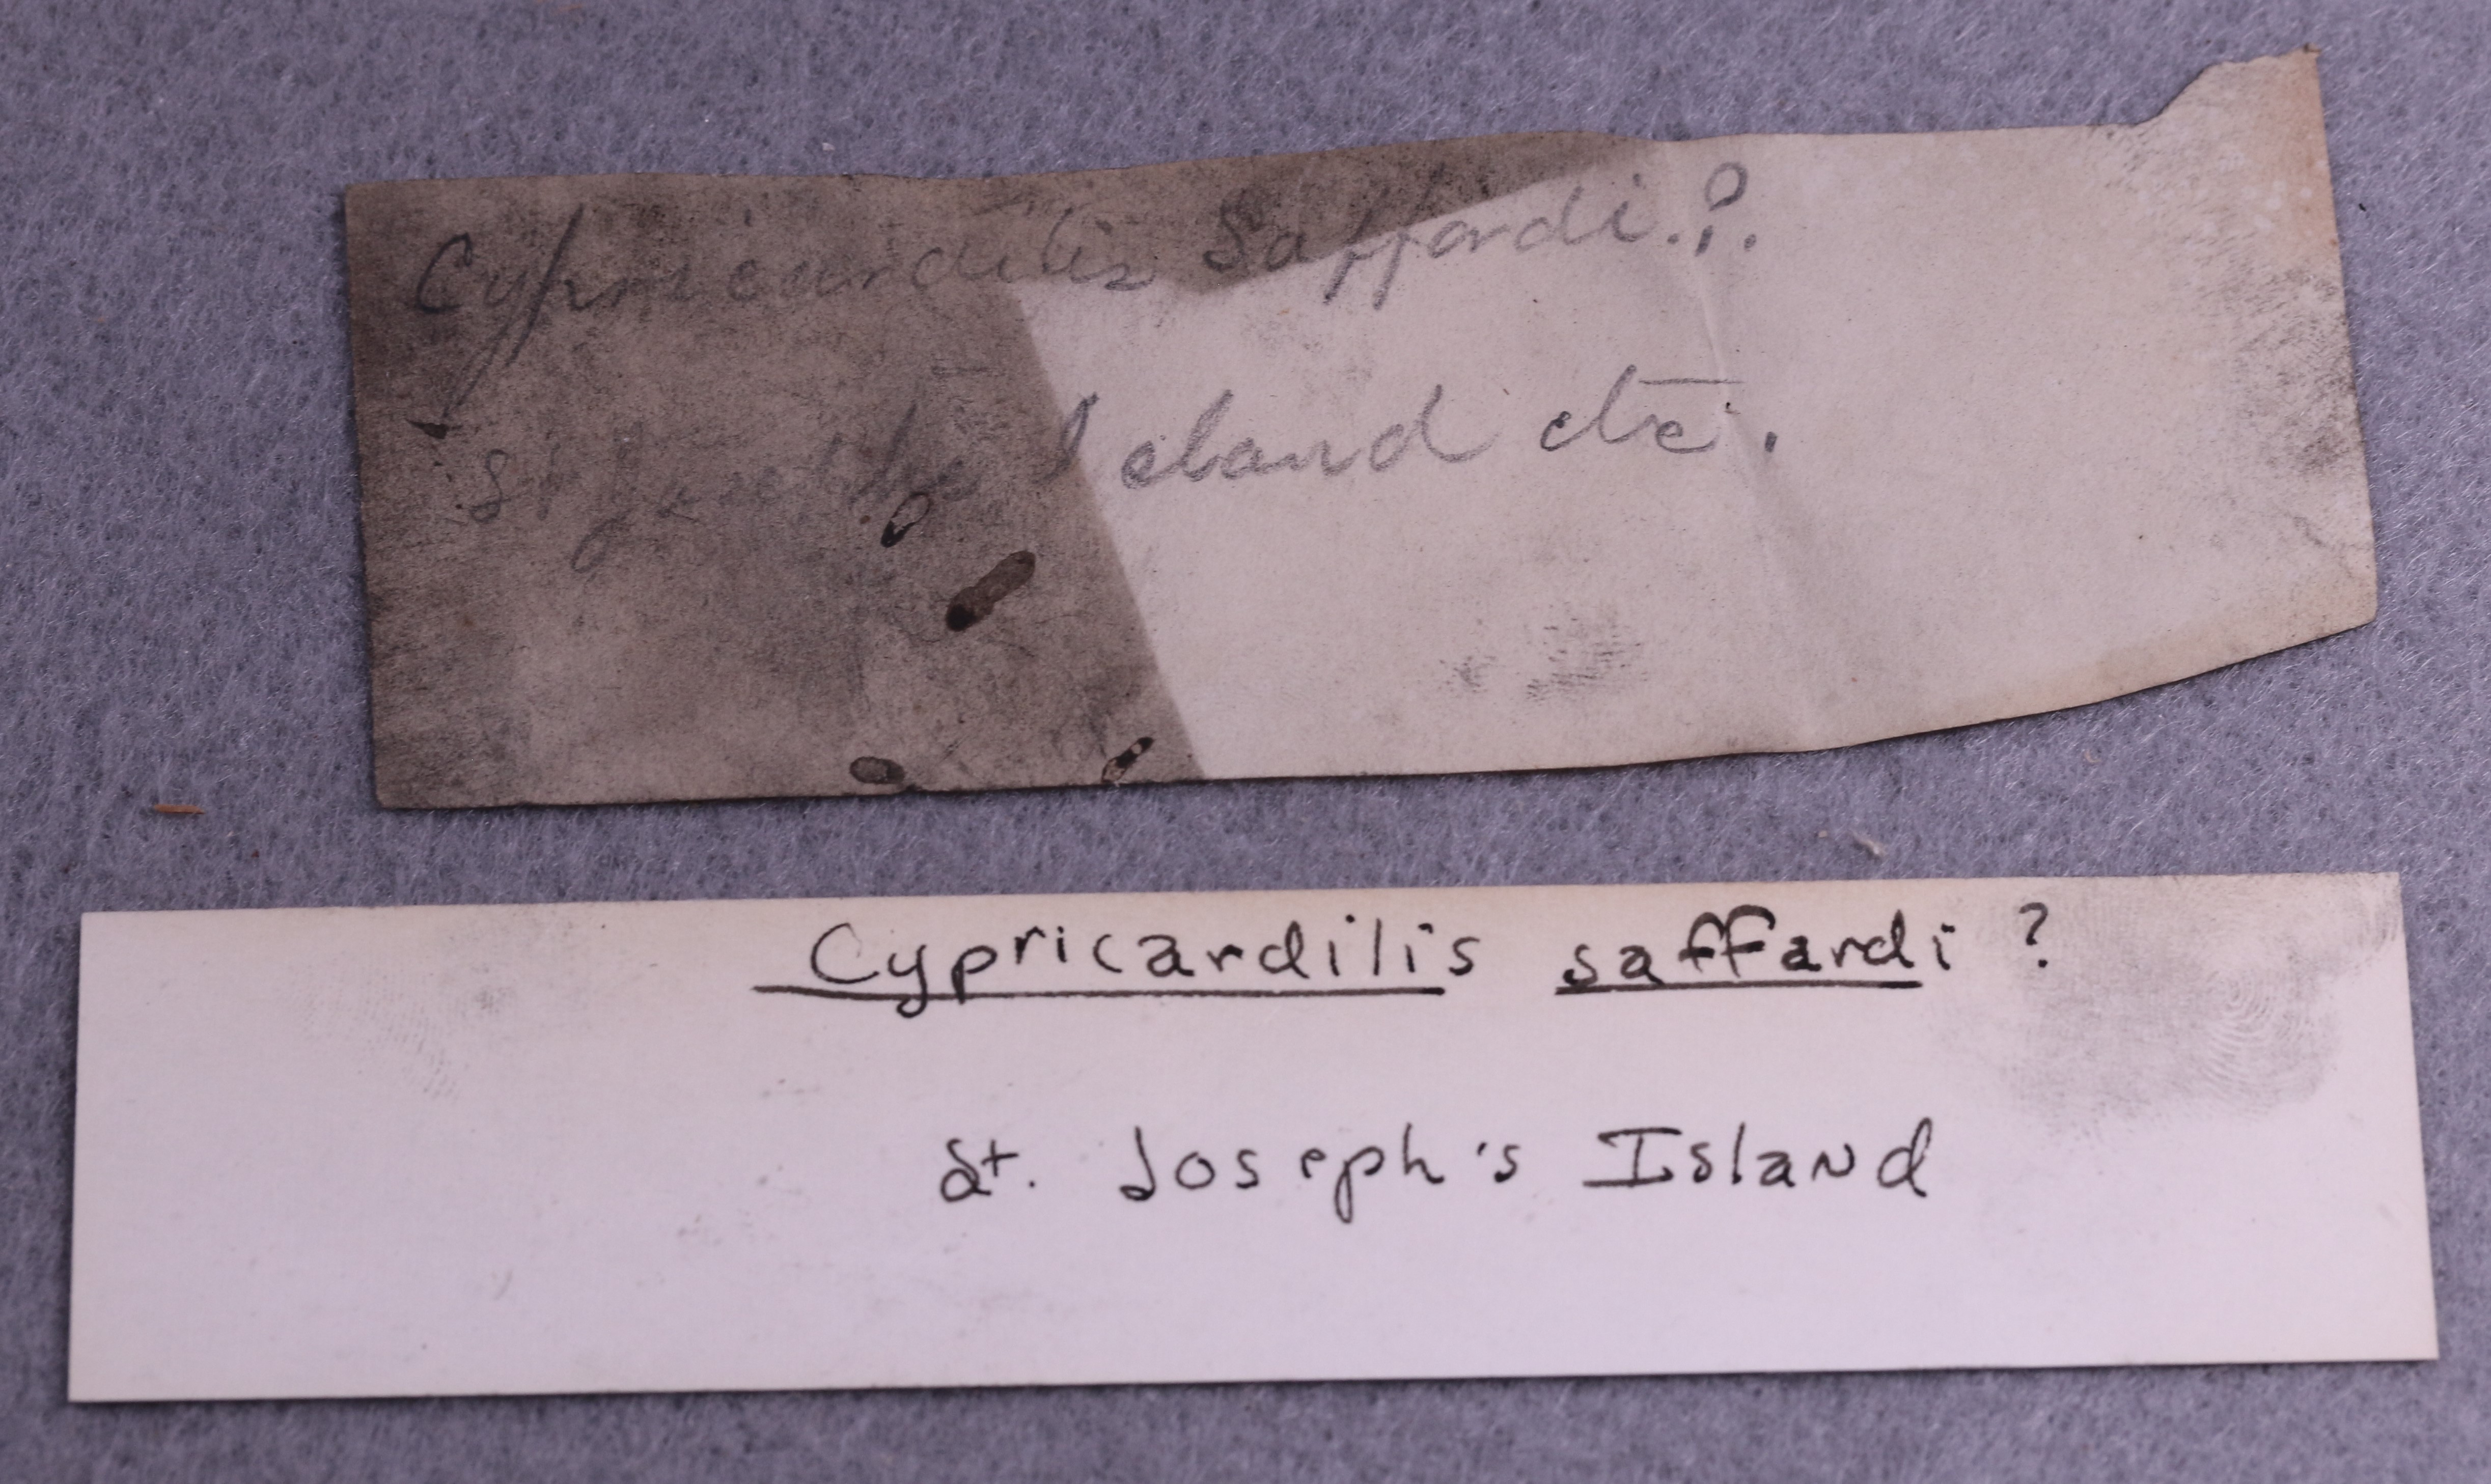 Cypricardilis Saffordi.?.
St Island etc.
Cypricardilis saffardi ?
St. Joseph's Island